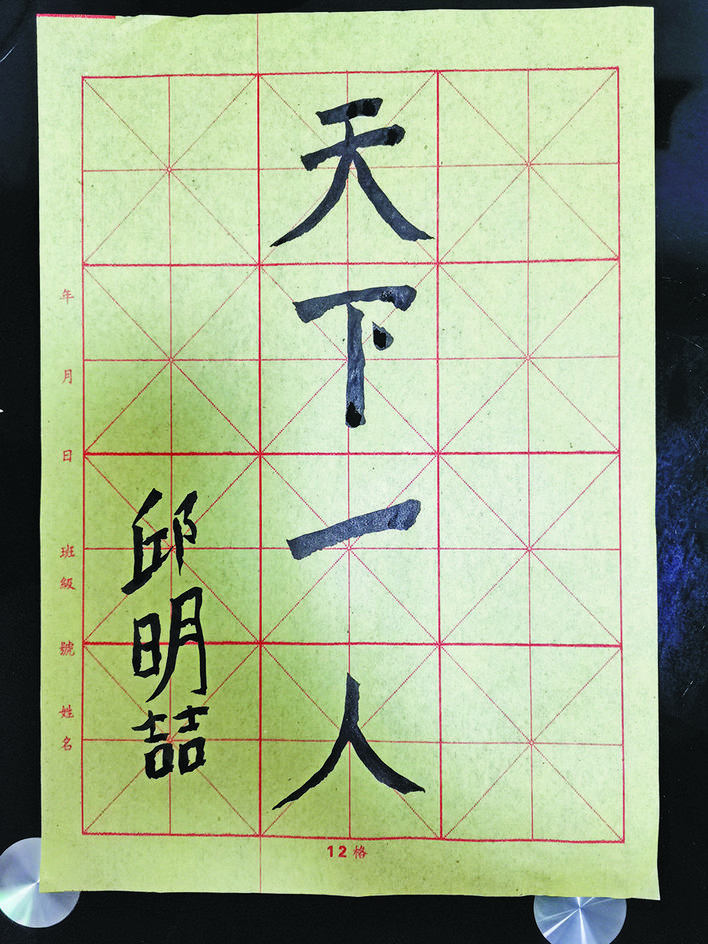 天下一人
邱明喆
年 月 日 班級 號 姓名
12格